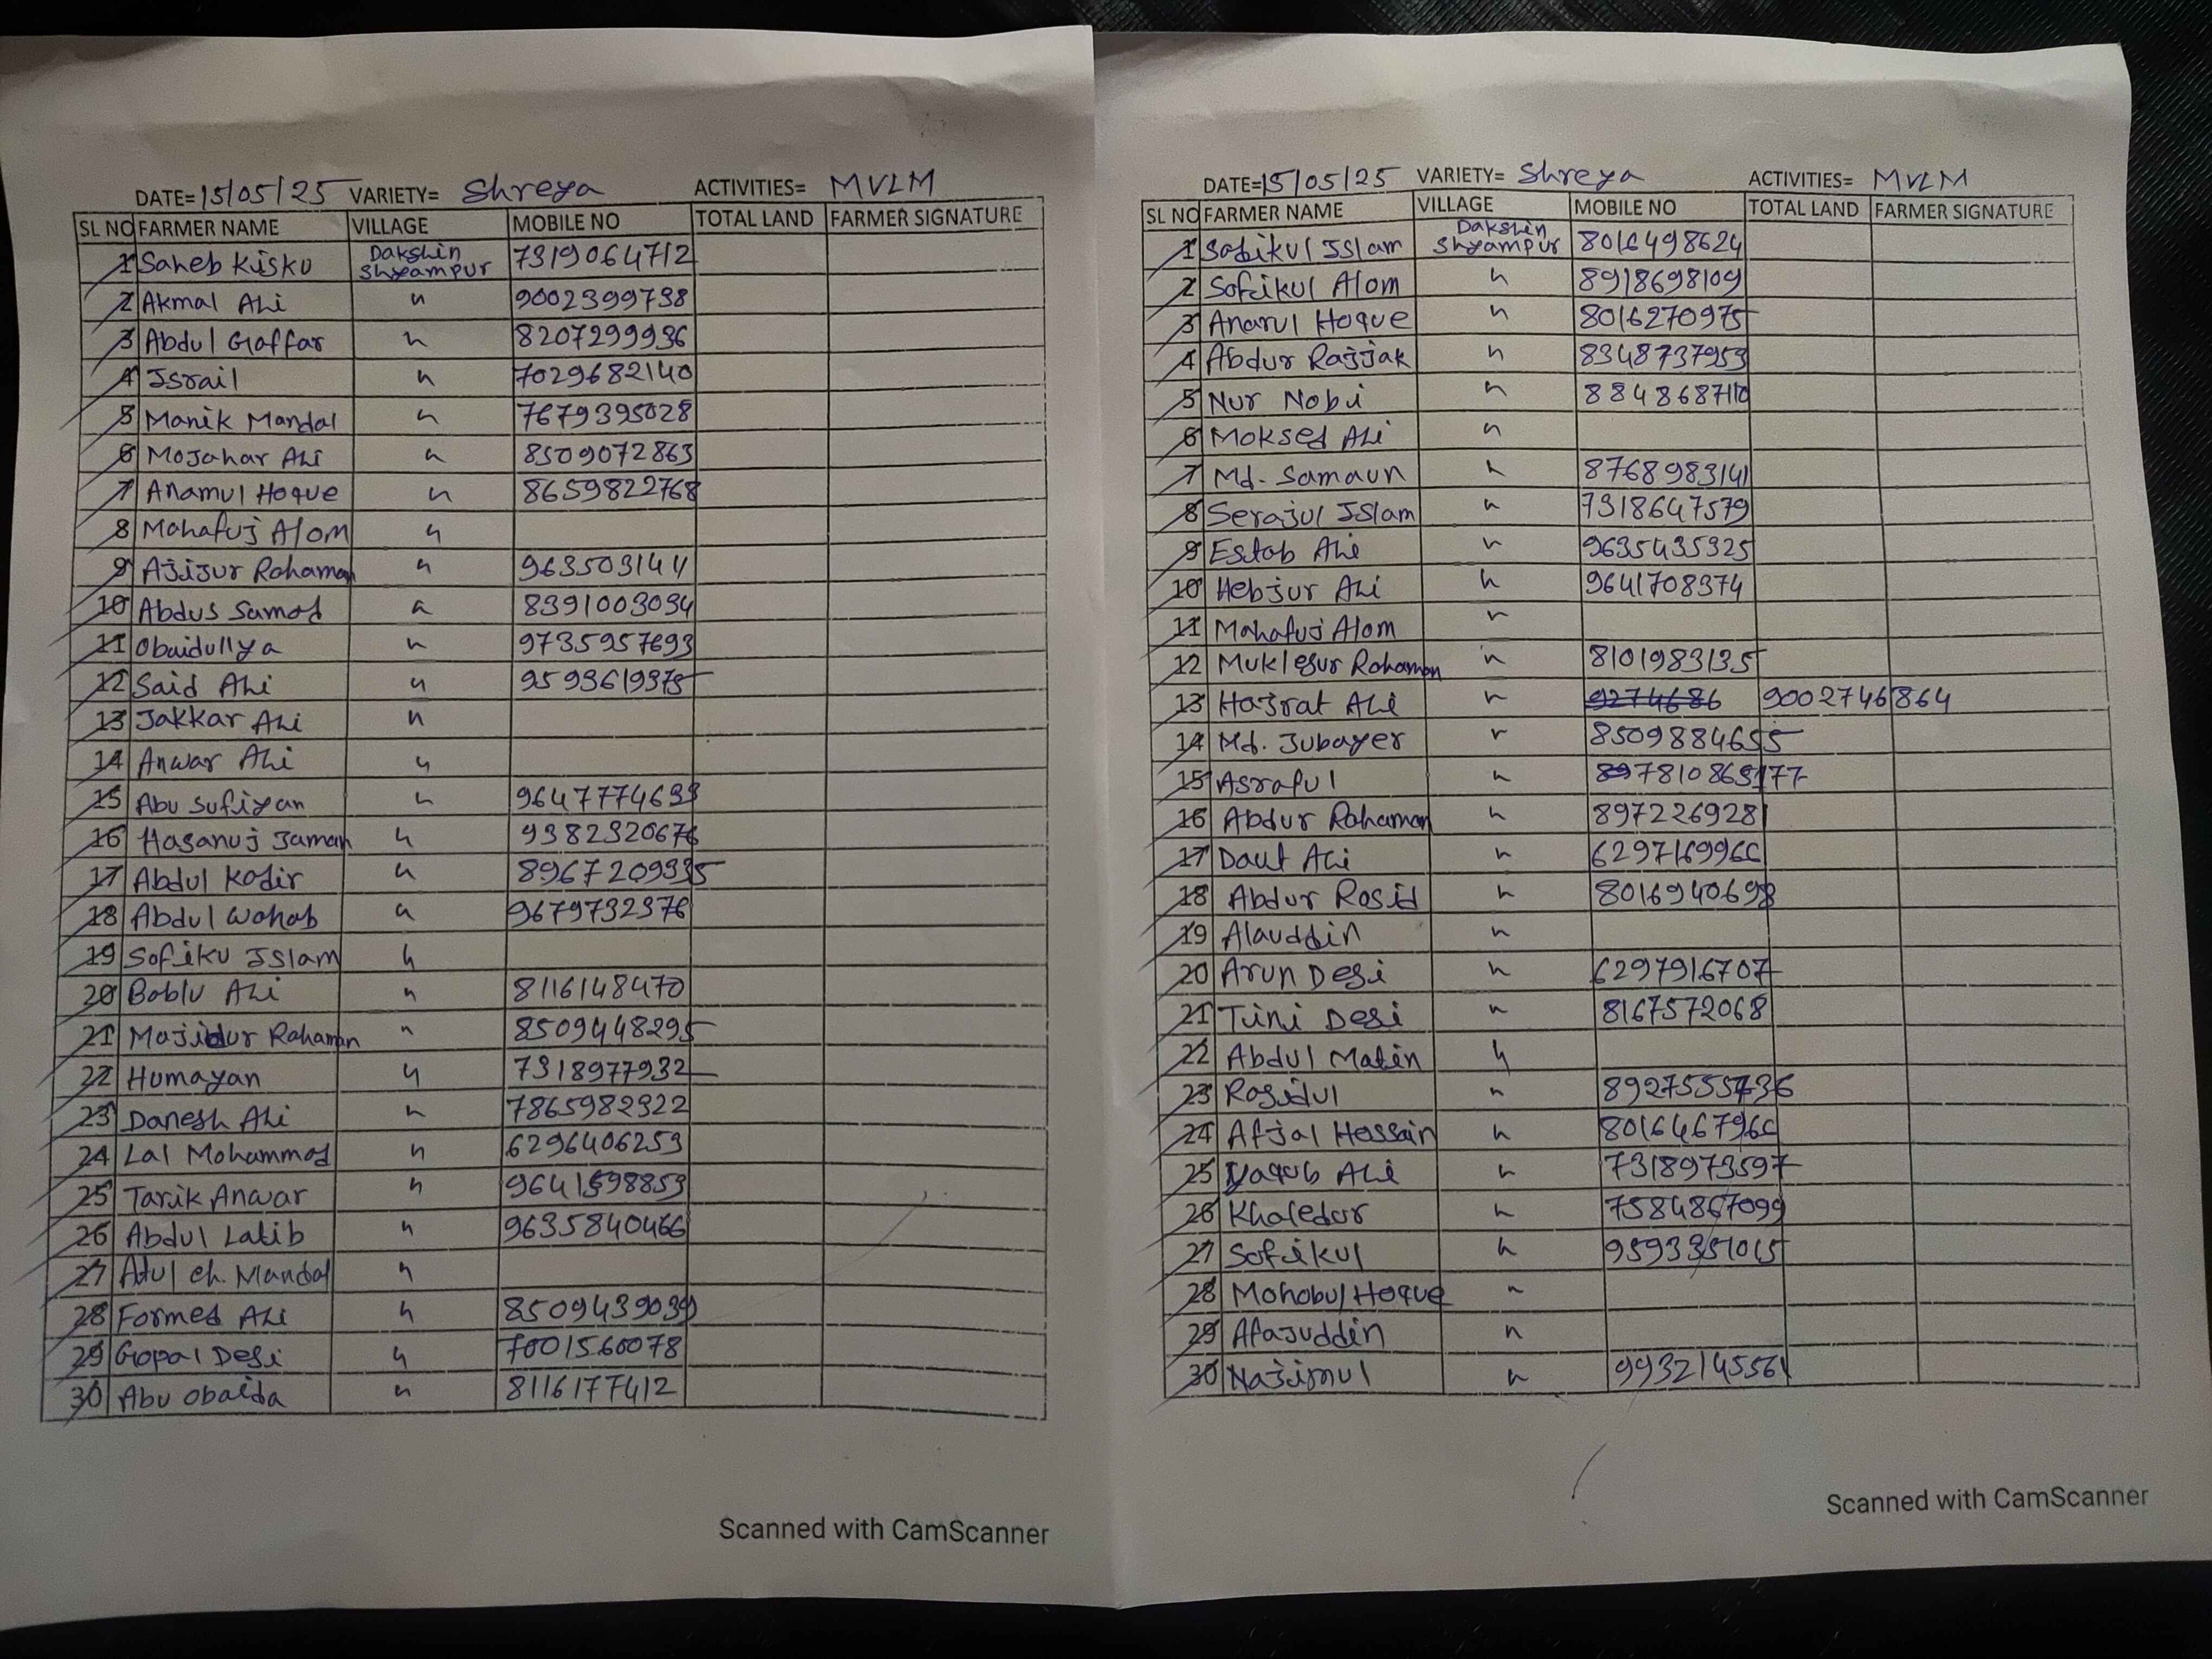 DATE=15/05/25 VARIETY= Shreya ACTIVITIES= MVLM
SL NO FARMER NAME VILLAGE MOBILE NO TOTAL LAND FARMER SIGNATURE
1 Saheb Kisku Dakshin Shyampur 7319064712
2 Akmal Ali " 9002399738
3 Abdul Gaffar " 8207299936
4 Israil " 7029682140
5 Manik Mandal " 7679395028
6 Mojahar Ali " 8509072863
7 Anamul Hoque " 8659822768
8 Mahafuj Alom "
9 Ajijur Rahaman " 963503144
10 Abdus Samad " 8391003034
11 Obaidullya " 9735957693
12 Said Ali " 9593619375
13 Jakkar Ali "
14 Anwar Ali "
15 Abu Sufiyan " 9647774633
16 Hasanuj Jaman " 9382320676
17 Abdul Kadir " 8967209335
18 Abdul Wahab " 9679732376
19 Sofiku Islam "
20 Bablu Ali " 8116148470
21 Majidur Rahaman " 8509448295
22 Humayan " 7318977932
23 Danesh Ali " 7865982322
24 Lal Mohammad " 6296406253
25 Tarik Anwar " 9641598853
26 Abdul Latib " 9635840466
27 Atul ch. Mandal "
28 Formed Ali " 8509439039
29 Gopal Desi " 7001560078
30 Abu Obaida " 8116177412
Scanned with CamScanner
DATE=15/05/25 VARIETY= Shreya ACTIVITIES= MVLM
SL NO FARMER NAME VILLAGE MOBILE NO TOTAL LAND FARMER SIGNATURE
1 Sabikul Islam Dakshin Shyampur 8016498624
2 Sofikul Alom " 8918698109
3 Anarul Hoque " 8016270975
4 Abdur Rajjak " 8348737953
5 Nur Nobi " 8848687110
6 Moksed Ali "
7 Md. Samaun " 8768983141
8 Serajul Islam " 7318647579
9 Estab Ali " 9635435325
10 Hebjur Ali " 9641708374
11 Mahafuj Alom "
12 Muklesur Rahaman " 8101983135
13 Hajrat Ali " 9002746864
14 Md. Jubayer " 8509884655
15 Asraful " 7810865177
16 Abdur Rahaman " 897226928
17 Daut Ali " 6297169966
18 Abdur Rosid " 8016940698
19 Alauddin "
20 Arun Desi " 6297916707
21 Tini Desi " 8167572068
22 Abdul Matin "
23 Rosidul " 8927555736
24 Afjal Hossain " 8016467966
25 Yaqub Ali " 7318973597
26 Khaledur " 7584867099
27 Sofikul " 9593351015
28 Mohobul Hoque "
29 Afajuddin "
30 Najimul " 9932145561
Scanned with CamScanner